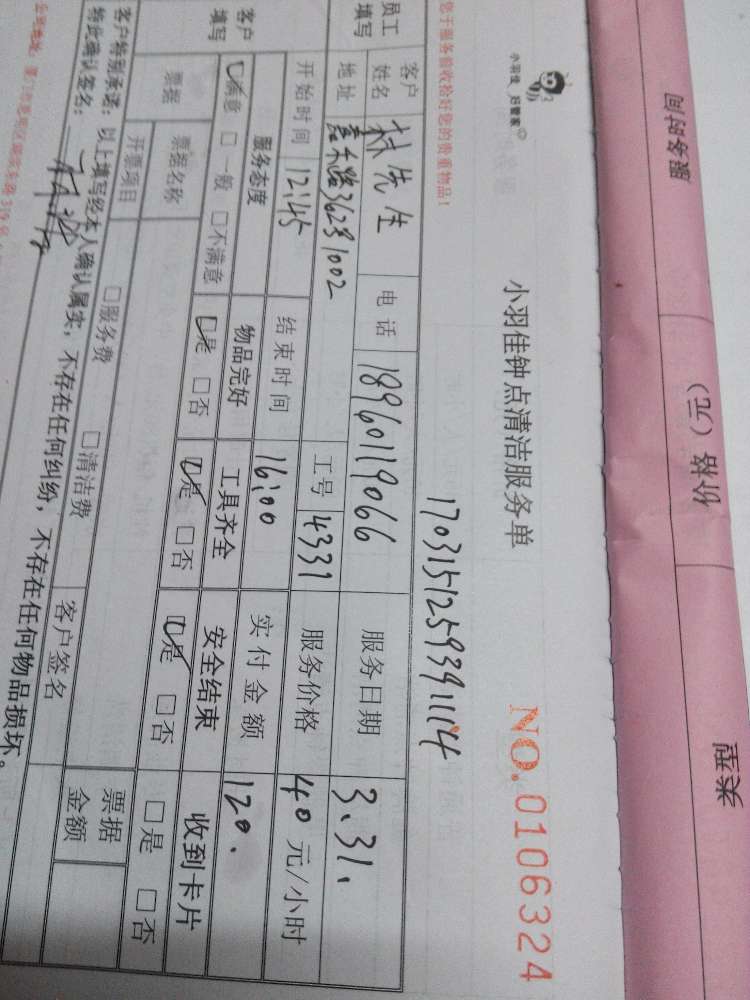 服务时间 价格（元） 类型
小羽佳 好管家
小羽佳钟点清洁服务单 NO.0106324
您于服务前收拾好您的贵重物品！
17031512593911114
员工填写 客户姓名 林先生 电话 18960119066 服务日期 3.31.
地址 嘉禾路362号1002 工号 4331 服务价格 40元/小时
客户填写 开始时间 12:45 结束时间 16:00 实付金额 120.
服务态度 物品完好 工具齐全 安全结束 收到卡片
满意 □一般 □不满意 是 □否 是 □否 是 □否 □是 □否
票据 票据名称 票据金额
开票项目 □服务费 □清洁费 客户签名
客户特别承诺：以上填写经本人确认属实，不存在任何纠纷，不存在任何物品损坏。
特此确认签名：